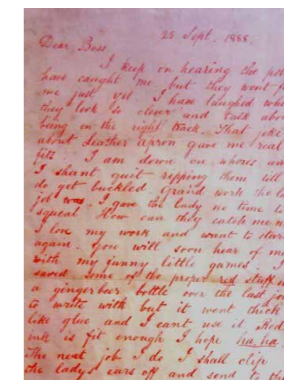 25 Sept. 1888.
Dear Boss
I keep on hearing the pol
have caught me but they wont f
me just yet. I have laughed whe
they look so clever and talk abou
being on the right track. That joke
about Leather apron gave me real
fits. I am down on whores and
I shant quit ripping them till
do get buckled. Grand work the la
job was. I gave the lady no time to
squeal. How can they catch me n
I love my work and want to star
again. you will soon hear of m
with my funny little games. I
saved some of the proper red stuff in
a ginger beer bottle over the last jo
to write with but it went thick
like glue and I cant use it. Red
ink is fit enough I hope ha. ha.
The next job I do I shall clip
the ladys ears off and send to th